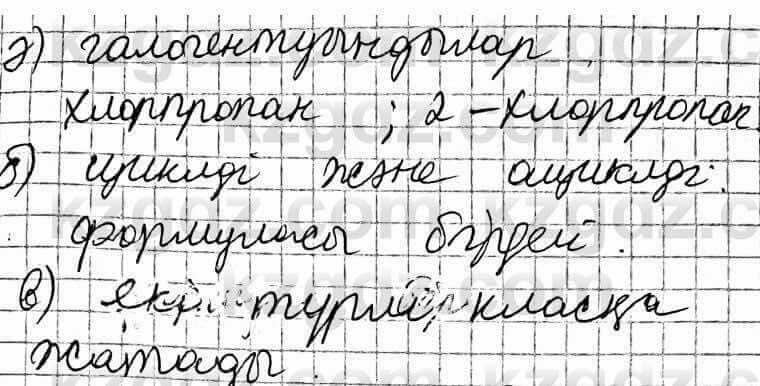 ә) галогентуындылар
хлорпропан ; 2 - хлорпропан.
б) циклді және ациклді.
формуласы бірдей.
в) екі түрлі класқа
жатады